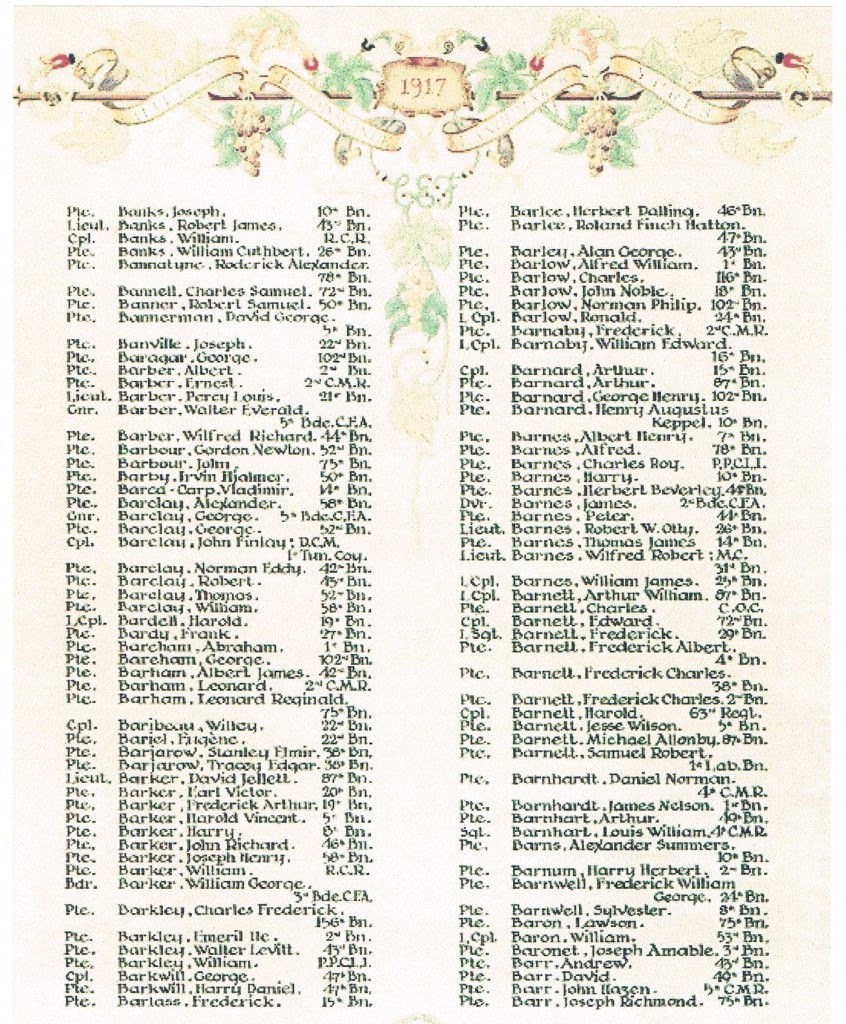 1917
YPRES
C.E.F.
Pte. Banks, Joseph. 10th Bn.
Lieut. Banks, Robert James. 43rd Bn.
Cpl. Banks, William. R.C.R.
Pte. Banks, William Cuthbert. 26th Bn.
Pte. Bannatyne, Roderick Alexander.
78th Bn.
Pte. Bannell, Charles Samuel. 72nd Bn.
Pte. Banner, Robert Samuel. 50th Bn.
Pte. Bannerman, David George.
5th Bn.
Pte. Banville, Joseph. 22nd Bn.
Pte. Baragar, George. 102nd Bn.
Pte. Barber, Albert. 2nd Bn.
Pte. Barber, Ernest. 2nd C.M.R.
Lieut. Barber, Percy Louis. 21st Bn.
Gnr. Barber, Walter Everald.
5th Bde. C.F.A.
Pte. Barber, Wilfred Richard. 44th Bn.
Pte. Barbour, Gordon Newton. 52nd Bn.
Pte. Barbour, John. 75th Bn.
Pte. Barby, Irvin Hjalmer. 50th Bn.
Pte. Barca-Carp, Vladimir. 14th Bn.
Pte. Barclay, Alexander. 58th Bn.
Gnr. Barclay, George. 5th Bde. C.F.A.
Pte. Barclay, George. 52nd Bn.
Cpl. Barclay, John Finlay; D.C.M.
1st Tun. Coy.
Pte. Barclay, Norman Eddy. 42nd Bn.
Pte. Barclay, Robert. 43rd Bn.
Pte. Barclay, Thomas. 52nd Bn.
Pte. Barclay, William. 58th Bn.
L.Cpl. Bardell, Harold. 19th Bn.
Pte. Bardy, Frank. 27th Bn.
Pte. Bareham, Abraham. 1st Bn.
Pte. Bareham, George. 102nd Bn.
Pte. Barham, Albert James. 42nd Bn.
Pte. Barham, Leonard. 2nd C.M.R.
Pte. Barham, Leonard Reginald.
75th Bn.
Cpl. Baribeau, Willey. 22nd Bn.
Pte. Bariel, Eugène. 22nd Bn.
Pte. Barjarow, Stanley Elmir. 38th Bn.
Pte. Barjarow, Tracey Edgar. 38th Bn.
Lieut. Barker, David Jellett. 87th Bn.
Pte. Barker, Earl Victor. 20th Bn.
Pte. Barker, Frederick Arthur. 19th Bn.
Pte. Barker, Harold Vincent. 5th Bn.
Pte. Barker, Harry. 8th Bn.
Pte. Barker, John Richard. 46th Bn.
Pte. Barker, Joseph Henry. 58th Bn.
Pte. Barker, William. R.C.R.
Bdr. Barker, William George.
3rd Bde. C.F.A.
Pte. Barkley, Charles Frederick.
156th Bn.
Pte. Barkley, Emeril Ile. 2nd Bn.
Pte. Barkley, Walter Levitt. 43rd Bn.
Pte. Barkley, William. P.P.C.L.I.
Cpl. Barkwill, George. 47th Bn.
Pte. Barkwill, Harry Daniel. 47th Bn.
Pte. Barlass, Frederick. 15th Bn.
Pte. Barlee, Herbert Dalling. 46th Bn.
Pte. Barlee, Roland Finch Hatton.
47th Bn.
Pte. Barley, Alan George. 43rd Bn.
Pte. Barlow, Alfred William. 1st Bn.
Pte. Barlow, Charles. 116th Bn.
Pte. Barlow, John Noble. 18th Bn.
Pte. Barlow, Norman Philip. 102nd Bn.
L.Cpl. Barlow, Ronald. 24th Bn.
Pte. Barnaby, Frederick. 2nd C.M.R.
L.Cpl. Barnaby, William Edward.
16th Bn.
Cpl. Barnard, Arthur. 15th Bn.
Pte. Barnard, Arthur. 87th Bn.
Pte. Barnard, George Henry. 102nd Bn.
Pte. Barnard, Henry Augustus
Keppel. 10th Bn.
Pte. Barnes, Albert Henry. 7th Bn.
Pte. Barnes, Alfred. 78th Bn.
Pte. Barnes, Charles Roy. P.P.C.L.I.
Pte. Barnes, Harry. 10th Bn.
Pte. Barnes, Herbert Beverley. 44th Bn.
Dvr. Barnes, James. 2nd Bde. C.F.A.
Pte. Barnes, Peter. 44th Bn.
Lieut. Barnes, Robert W. Otty. 26th Bn.
Pte. Barnes, Thomas James 14th Bn.
Lieut. Barnes, Wilfred Robert; M.C.
31st Bn.
L.Cpl. Barnes, William James. 25th Bn.
L.Cpl. Barnett, Arthur William. 87th Bn.
Pte. Barnett, Charles. C.O.C.
Cpl. Barnett, Edward. 72nd Bn.
L.Sgt. Barnett, Frederick. 29th Bn.
Pte. Barnett, Frederick Albert.
4th Bn.
Pte. Barnett, Frederick Charles.
38th Bn.
Pte. Barnett, Frederick Charles. 2nd Bn.
Cpl. Barnett, Harold. 63rd Regt.
Pte. Barnett, Jesse Wilson. 5th Bn.
Pte. Barnett, Michael Allonby. 87th Bn.
Pte. Barnett, Samuel Robert.
1st Lab. Bn.
Pte. Barnhardt, Daniel Norman.
4th C.M.R.
Pte. Barnhardt, James Nelson. 1st Bn.
Pte. Barnhart, Arthur. 49th Bn.
Sgt. Barnhart, Louis William. 4th C.M.R.
Pte. Barns, Alexander Summers.
10th Bn.
Pte. Barnum, Harry Herbert. 2nd Bn.
Pte. Barnwell, Frederick William
George. 24th Bn.
Pte. Barnwell, Sylvester. 8th Bn.
Pte. Baron, Lawson. 75th Bn.
L.Cpl. Baron, William. 53rd Bn.
Pte. Baronet, Joseph Amable. 3rd Bn.
Pte. Barr, Andrew. 43rd Bn.
Pte. Barr, David. 49th Bn.
Pte. Barr, John Hazen. 5th C.M.R.
Pte. Barr, Joseph Richmond. 75th Bn.